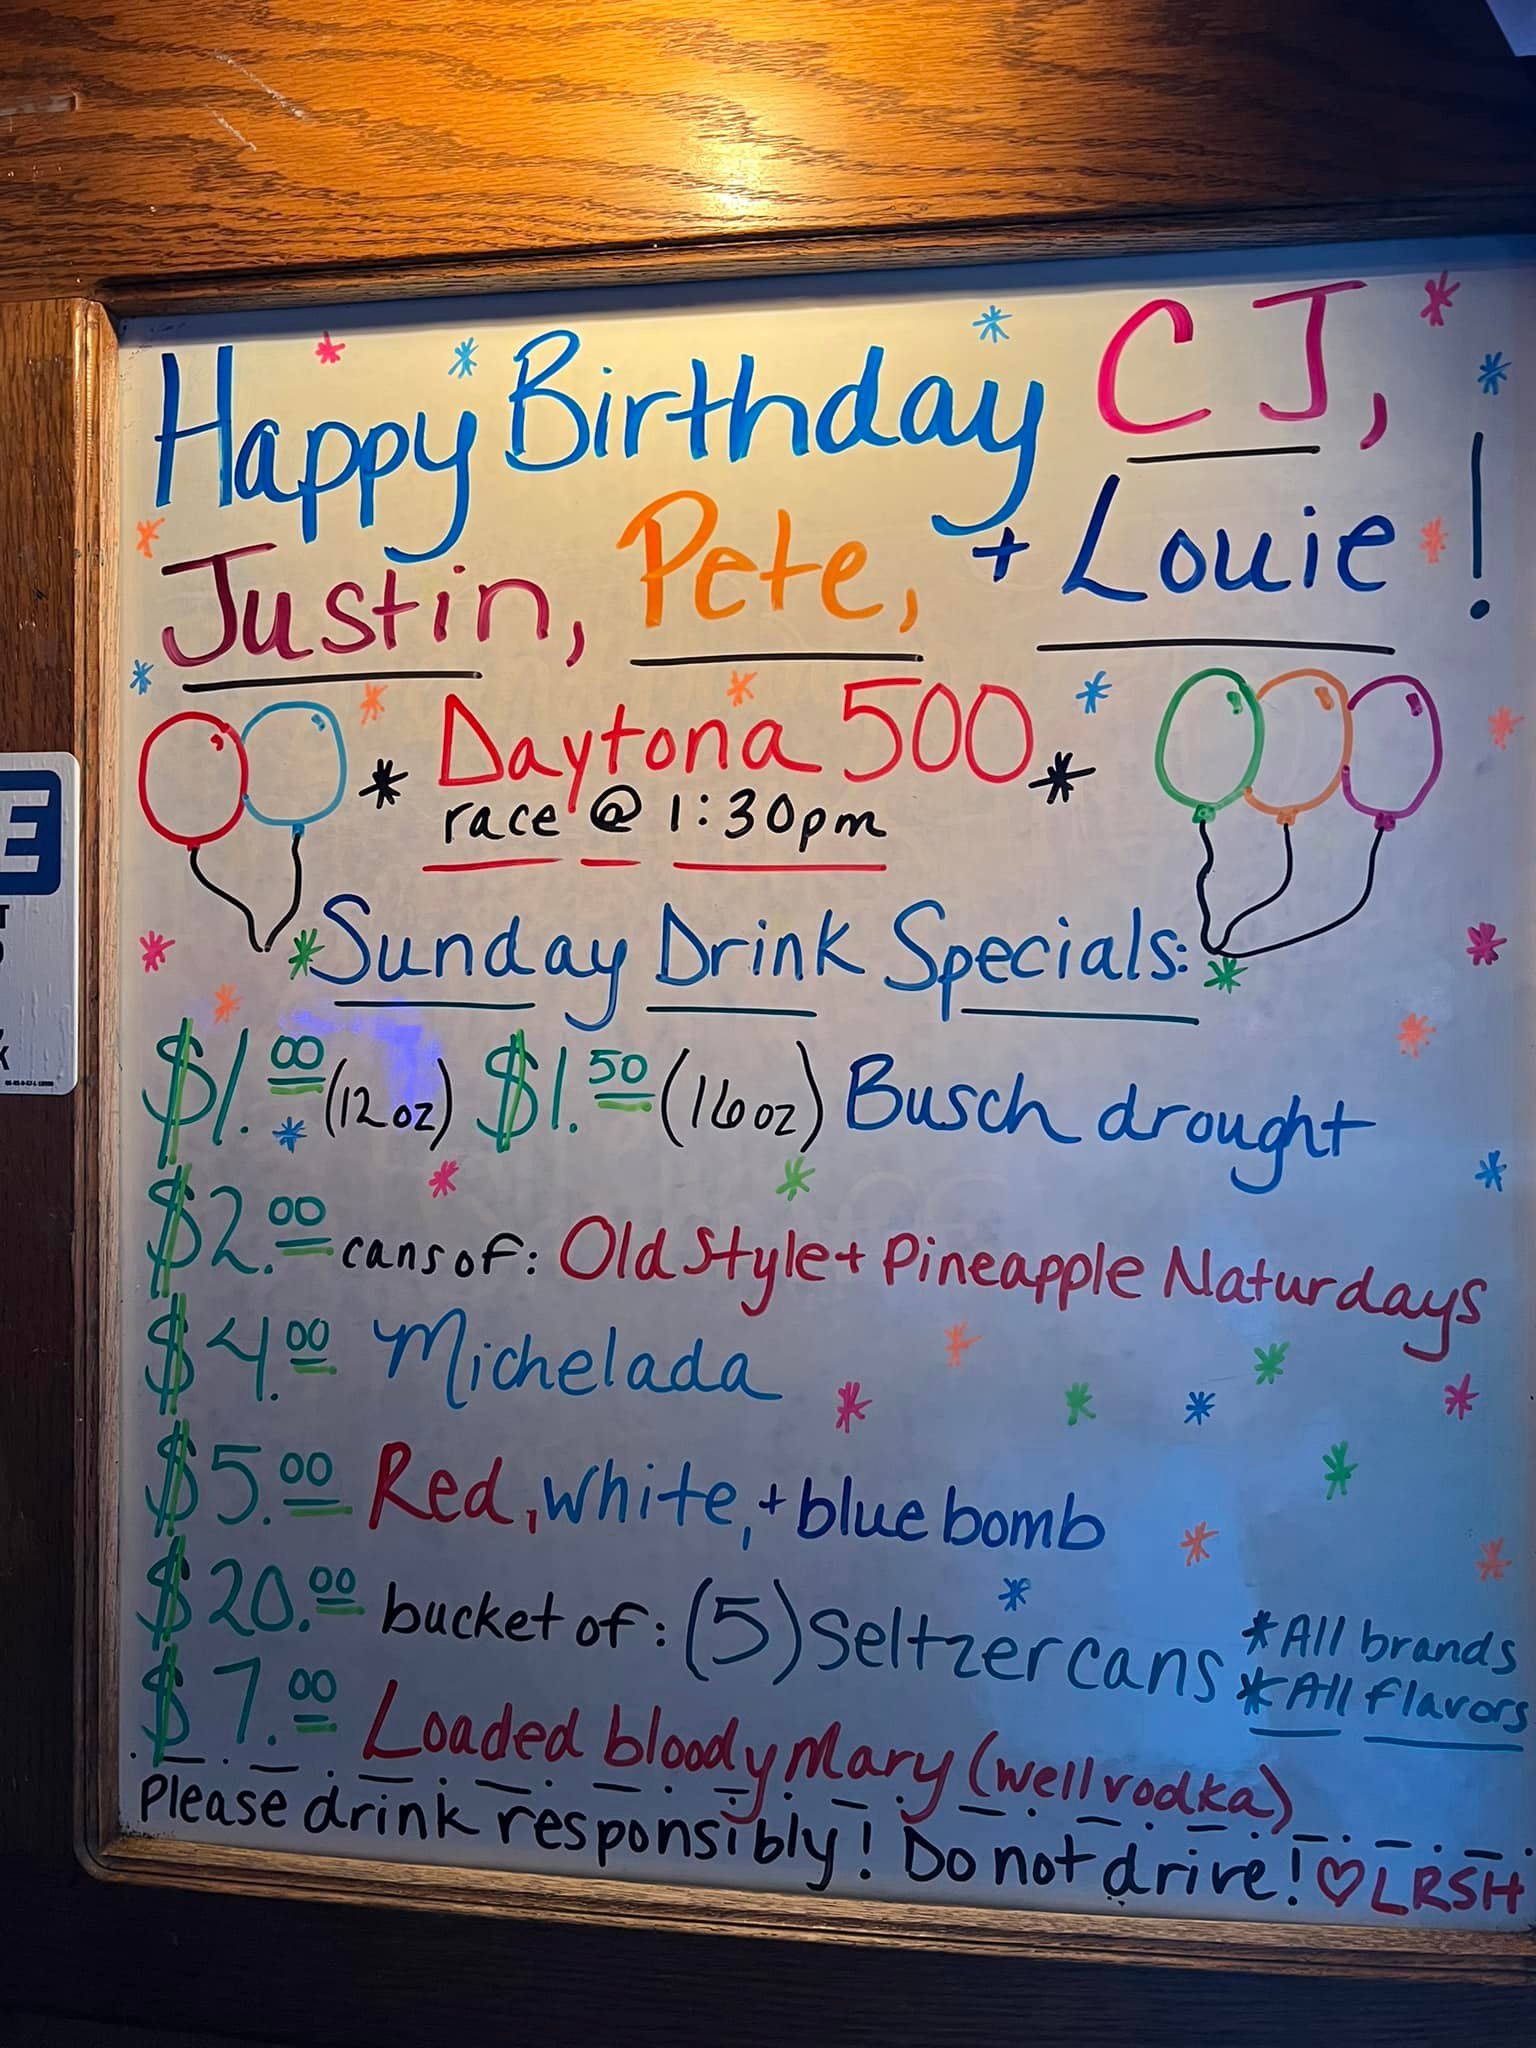 Happy Birthday CJ,
Justin, Pete, + Louie!
* Daytona 500 *
race @ 1:30pm
Sunday Drink Specials:
$1.00 (12oz) $1.50 (16oz) Busch drought
$2.00 cans of: Old Style + Pineapple Naturdays
$4.00 Michelada
$5.00 Red, white, + blue bomb
$20.00 bucket of: (5) Seltzer cans *All brands
*All flavors
$7.00 Loaded bloody Mary (well vodka)
Please drink responsibly! Do not drive! ♡LRSH
E